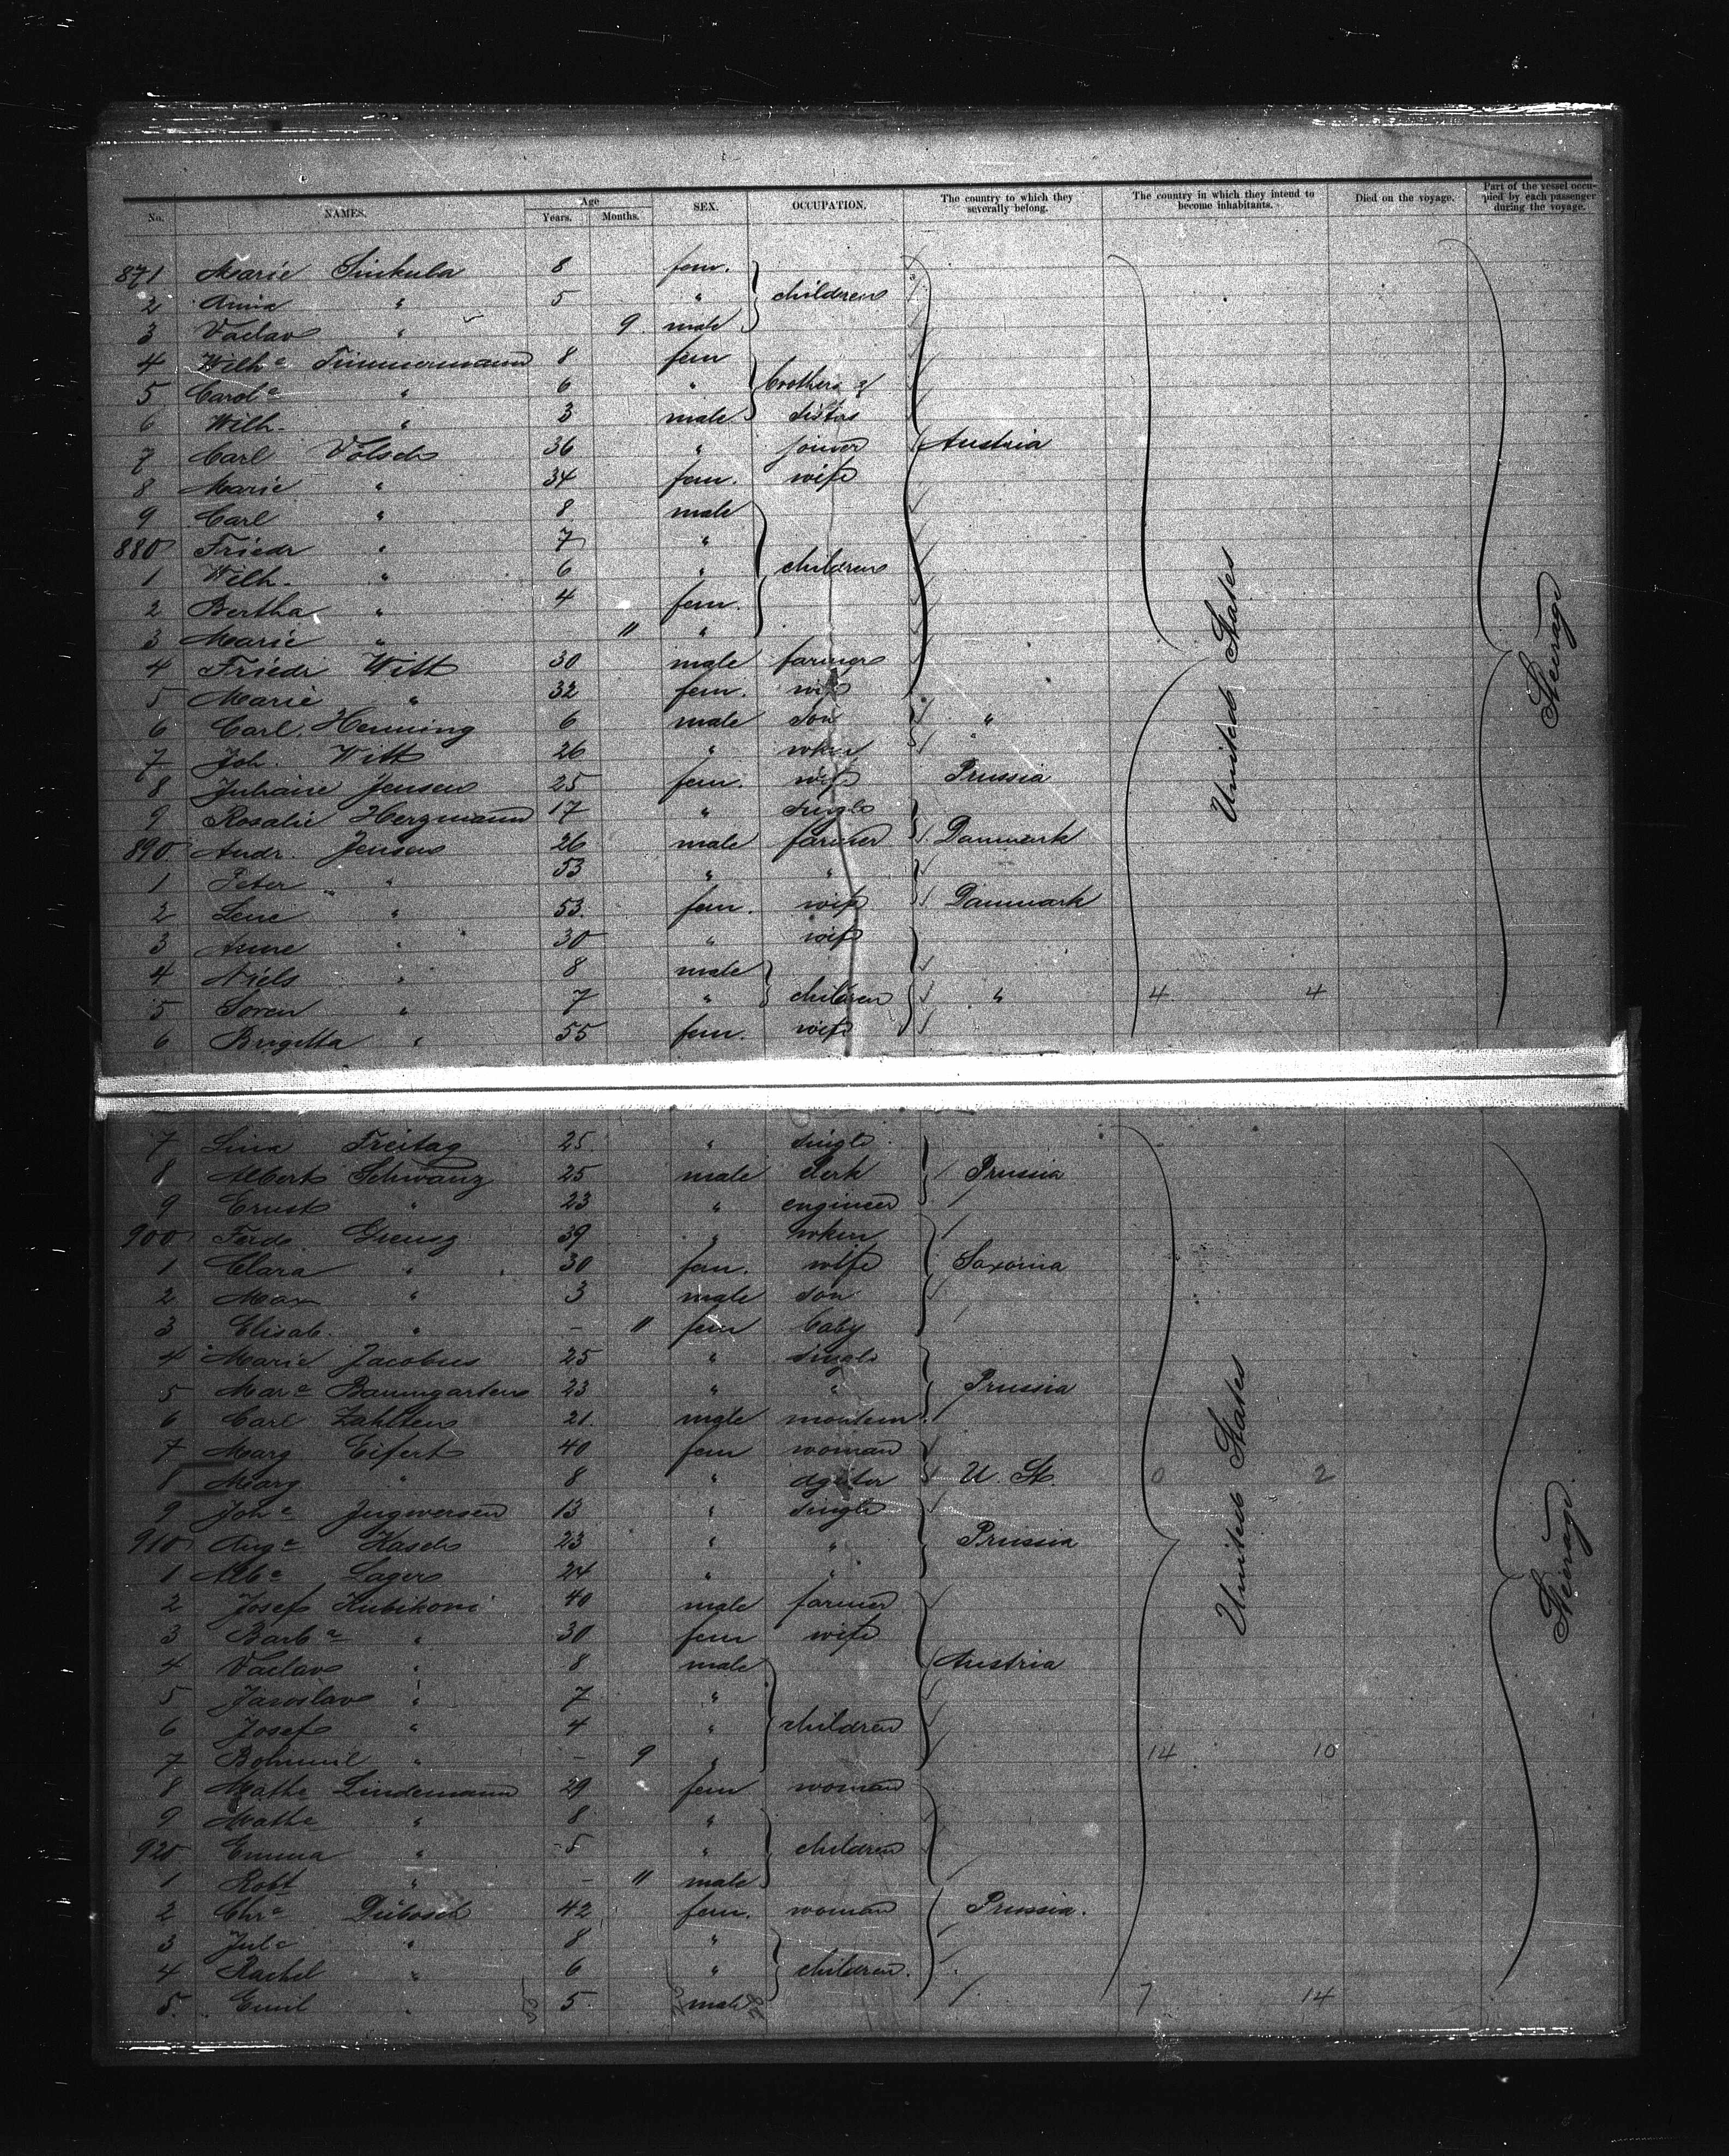 No. NAMES. Age Years. Months. SEX. OCCUPATION. The country to which they severally belong. The country in which they intend to become inhabitants. Died on the voyage. Part of the vessel occupied by each passenger during the voyage.
871 Marie Sinkula 8 fem.
2 Anna " 5 " children
3 Vaclav " 9 male
4 Wilh.e Timmermann 8 fem
5 Carol.e " 6 " brothers &
6 Wilh. " 3 male sisters
7 Carl Völsch 36 " joiner Austria
8 Marie " 34 fem. wife
9 Carl " 8 male
880 Friedr " 7 "
1 Wilh. " 6 " children
2 Bertha " 4 fem.
3 Marie " 11 "
4 Friedr Witt 30 male farmer
5 Marie " 32 fem. wife
6 Carl Henning 6 male son "
7 Joh. Witt 26 " wkm
8 Juliane Jensen 25 fem. wife Prussia
9 Rosalie Herzmann 17 " single
890 Andr. Jensen 26 male farmer Danmark
1 Peter " 53 " "
2 Lene " 53. fem. wife Danmark
3 Anne " 30 " wife
4 Niels " 8 male
5 Soren " 7 " children " 4 4
6 Brigetta " 55 fem. wife
United States
Steerage
7 Lina Freitag 25. " single
8 Albert Schwanz 25 male clerk Prussia
9 Ernst " 23 " engineer
900 Ferd. 39 " wkm
1 Clara " 30 fem. wife Saxonia
2 Max " 3 male son
3 Elisab. " - 11 fem baby
4 Marie Jacobus 25 " single
5 Mar.e Baumgarten 23 " " Prussia
6 Carl Zahlten 21. male
7 Marg Eifert 40 fem woman
8 Marg " 8 " dghter U. St. 0 2
9 Joh.e Jugwersen 13 " single
910 Aug.e Hasch 23 " " Prussia
1 Alb.e Lager 24 " "
2 Josef Kubikoni 40 male farmer
3 Barb.a " 30 fem wife
4 Vaclav " 8 male Austria
5 Jaroslav " 7 "
6 Josef " 4 " children
7 Bohumil " - 9 " 14 10
8 Mathe Lindemann 29 fem woman
9 Mathe " 8 "
920 Emma " 5 " children
1 Robt " - 11 male
2 Chr.e Dübosch 42 fem. woman Prussia.
3 Jul.e " 8 "
4 Rachel " 6 " children.
5. Emil " 5 male 7 14
United States
Steerage